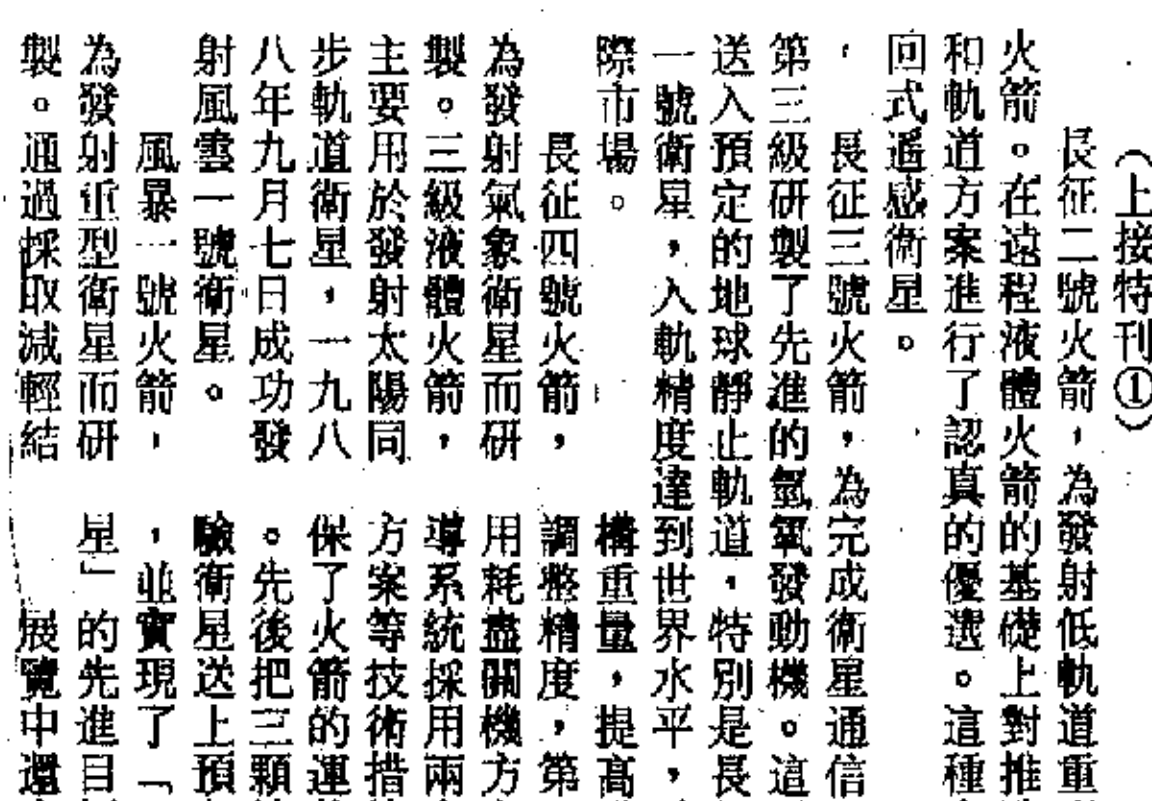 （上接特刊①）
長征二號火箭，為發射低軌道重
火箭。在遠程液體火箭的基礎上對推
和軌道方案進行了認真的優選。這種
回式遙感衛星。
長征三號火箭，為完成衛星通信
第三級研製了先進的氫氧發動機。這
送入預定的地球靜止軌道，特別是長
一號衛星，入軌精度達到世界水平，
際市場。
長征四號火箭，
為發射氣象衛星而研
製。三級液體火箭，
主要用於發射太陽同
步軌道衛星，一九八
八年九月七日成功發
射風雲一號衛星。
風暴一號火箭，
為發射重型衛星而研
製。通過採取減輕結
構重量，提高
調整精度，第
用耗盡關機方
導系統採用兩
方案等技術措
保了火箭的運
。先後把三顆
驗衛星送上預
，並實現了「
星」的先進目
展覽中還